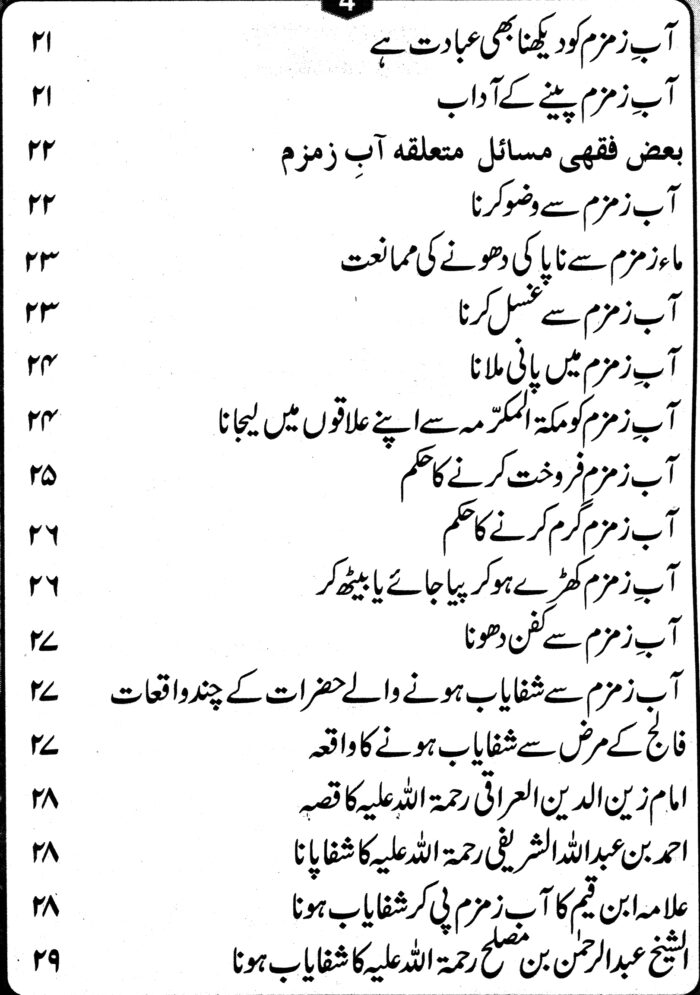 4
آبِ زمزم کو دیکھنا بھی عبادت ہے ۲۱
آبِ زمزم پینے کے آداب ۲۱
بعض فقهی مسائل متعلقه آبِ زمزم ۲۲
آبِ زمزم سے وضو کرنا ۲۲
ماء زمزم سے ناپاکی دھونے کی ممانعت ۲۳
آبِ زمزم سے غسل کرنا ۲۳
آبِ زمزم میں پانی ملانا ۲۴
آبِ زمزم کو مکۃ المکرّمہ سے اپنے علاقوں میں لیجانا ۲۴
آبِ زمزم فروخت کرنے کا حکم ۲۵
آبِ زمزم گرم کرنے کا حکم ۲۶
آبِ زمزم کھڑے ہو کر پیا جائے یا بیٹھ کر ۲۶
آبِ زمزم سے کفن دھونا ۲۷
آبِ زمزم سے شفایاب ہونے والے حضرات کے چند واقعات ۲۷
فالج کے مرض سے شفایاب ہونے کا واقعہ ۲۷
امام زین الدین العراقی رحمۃ اللہ علیہ کا قصہ ۲۸
احمد بن عبداللہ الشریفی رحمۃ اللہ علیہ کا شفا پانا ۲۸
علامہ ابن قیم کا آبِ زمزم پی کر شفایاب ہونا ۲۸
الشیخ عبدالرحمٰن بن مصلح رحمۃ اللہ علیہ کا شفایاب ہونا ۲۹